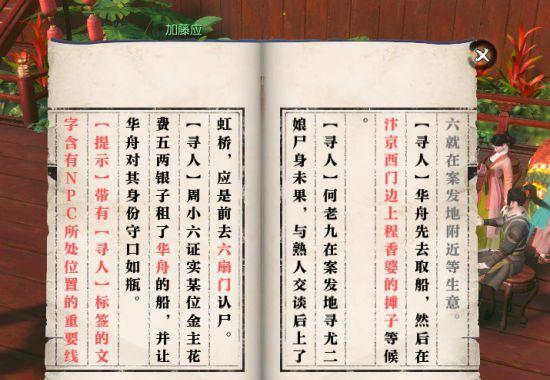 加藤应
六就在案发地附近等生意。
【寻人】华舟先去取船，然后在
汴京西门边上程香婆的摊子等候
。
【寻人】何老九在案发地寻尤二
娘尸身未果，与熟人交谈后上了
虹桥，应是前去六扇门认尸。
【寻人】周小六证实某位金主花
费五两银子租了华舟的船，并让
华舟对其身份守口如瓶。
【提示】带有【寻人】标签的文
字含有NPC所处位置的重要线